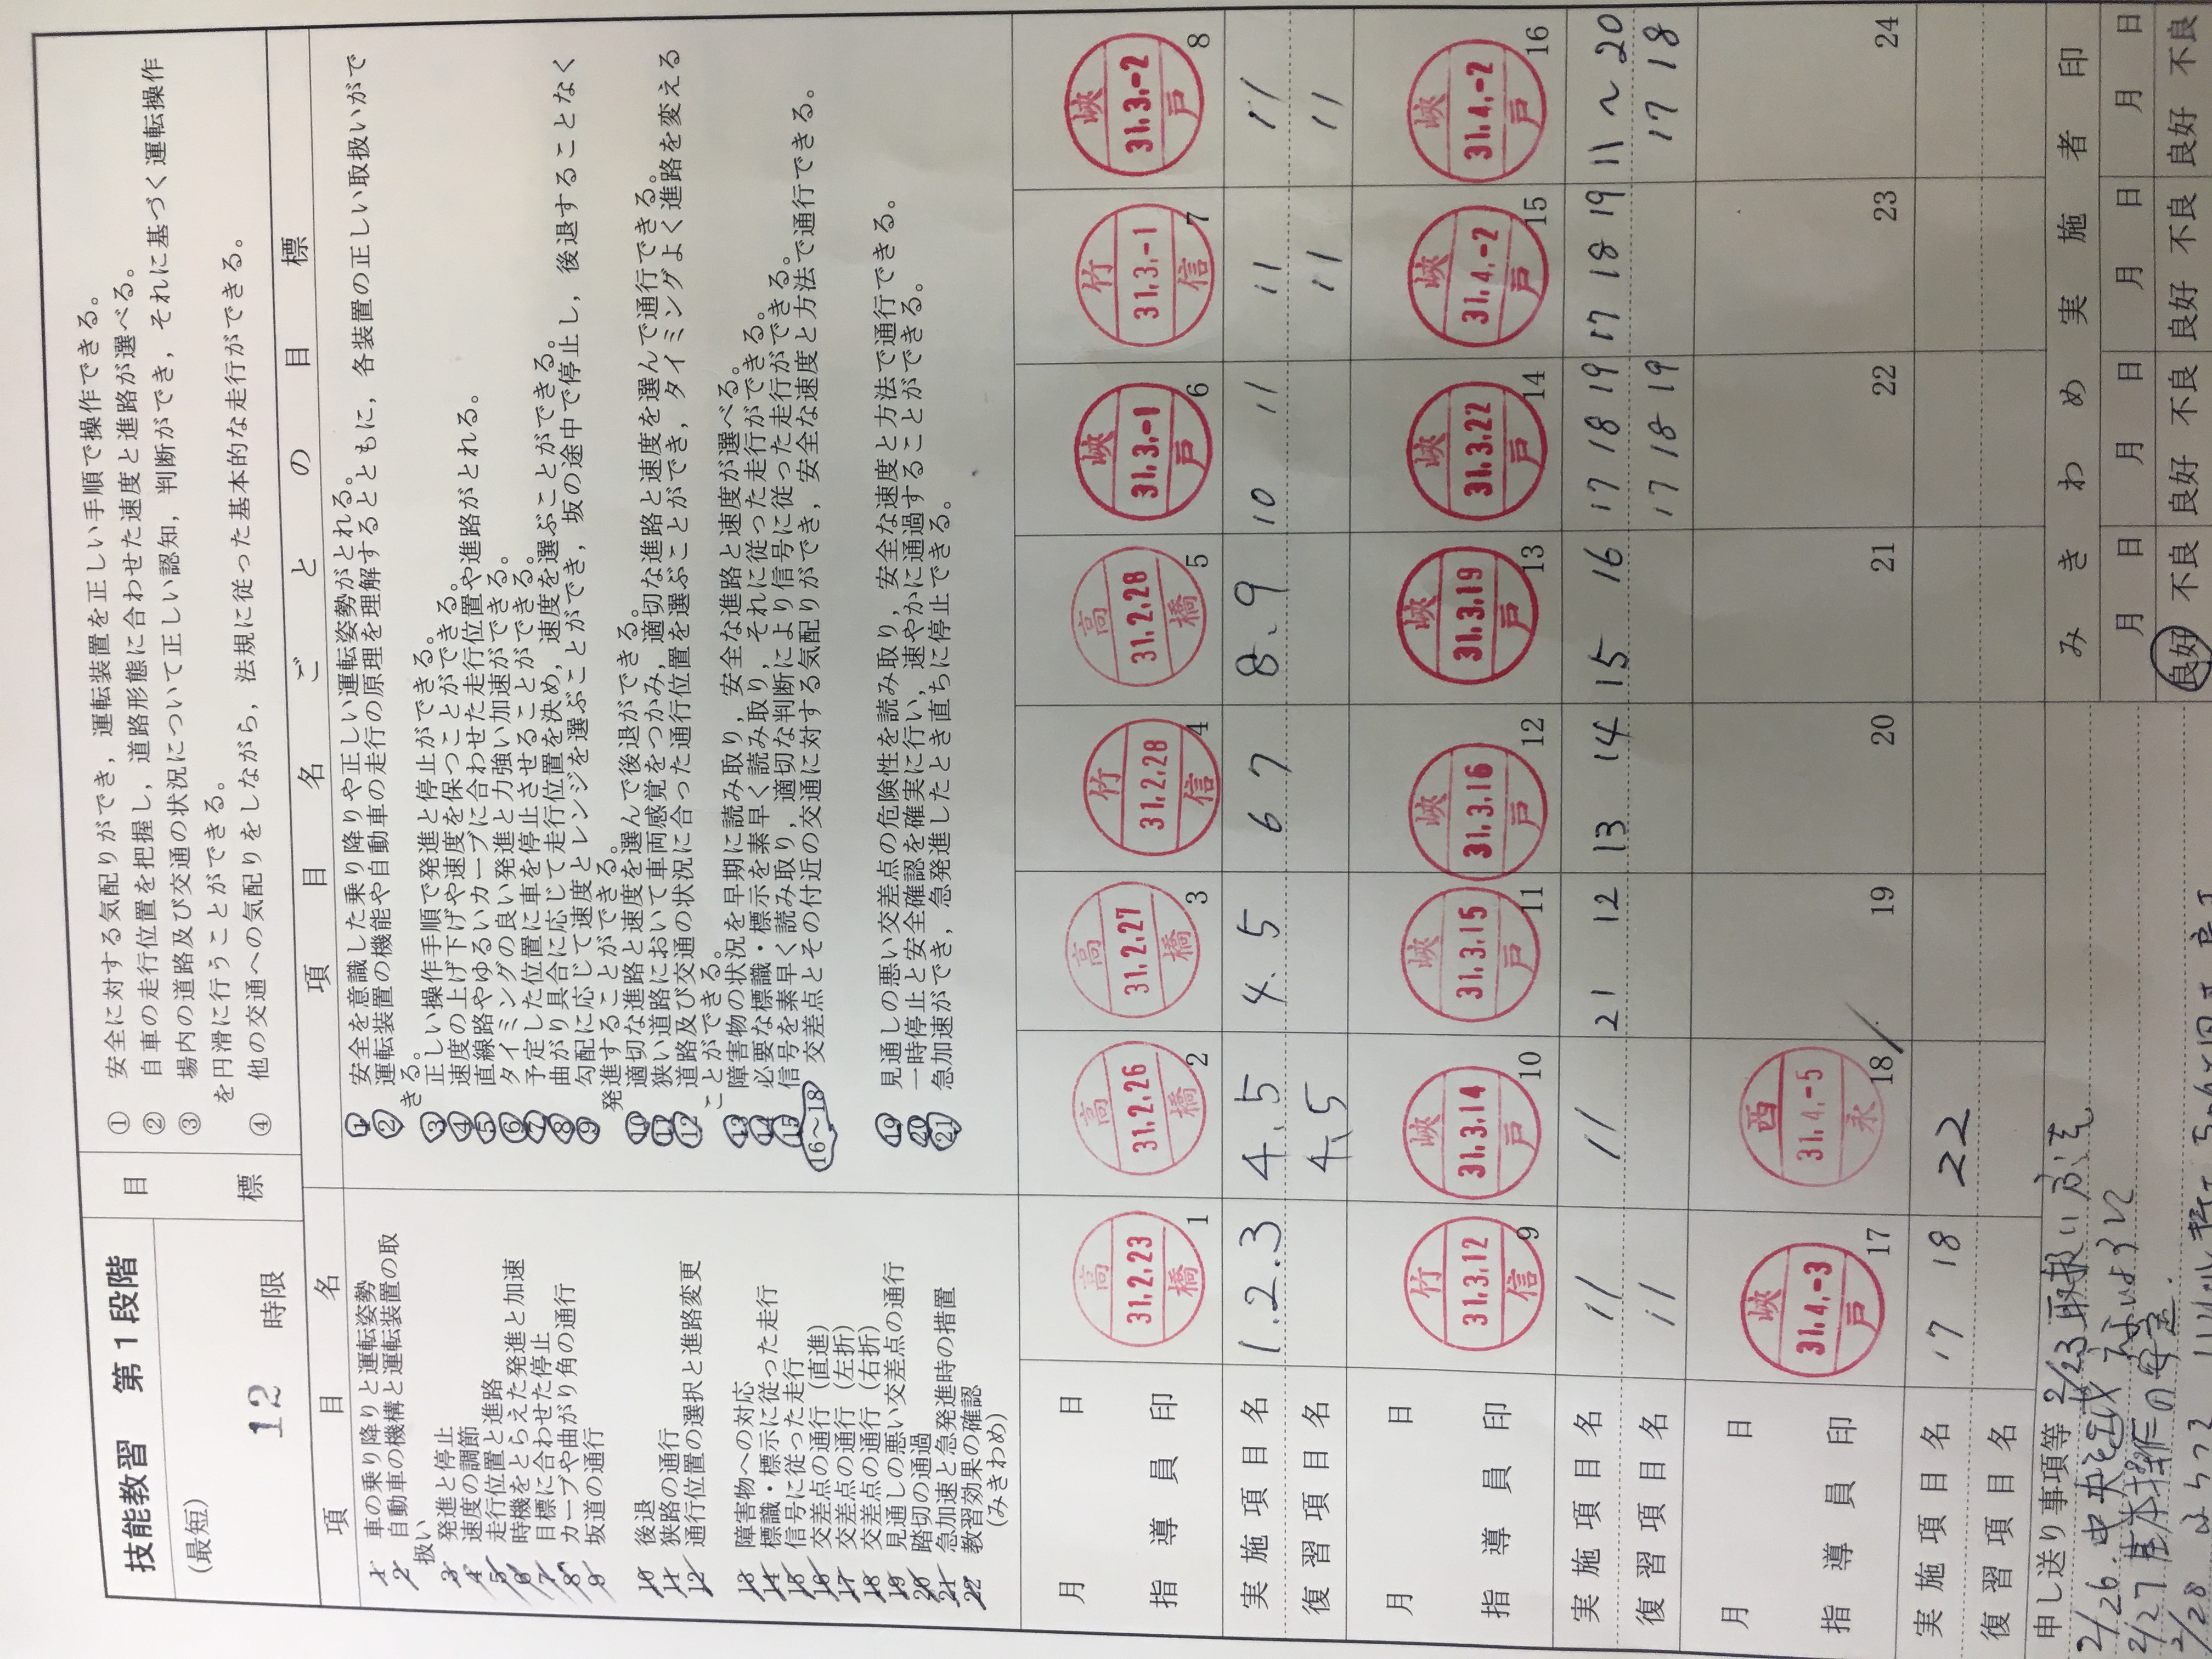 技能教習 第1段階
(最短)
12 時限
目標
① 安全に対する気配りができ，運転装置を正しい手順で操作できる。
② 自車の走行位置を把握し，道路形態に合わせた速度と進路が選べる。
③ 場内の道路及び交通の状況について正しい認知，判断ができ，それに基づく運転操作
を円滑に行うことができる。
④ 他の交通への気配りをしながら，法規に従った基本的な走行ができる。
項目名
1 車の乗り降りと運転姿勢
2 自動車の機構と運転装置の取
扱い
3 発進と停止
4 速度の調節
5 走行位置と進路
6 時機をとらえた発進と加速
7 目標に合わせた停止
8 カーブや曲がり角の通行
9 坂道の通行
10 後退
11 狭路の通行
12 通行位置の選択と進路変更
13 障害物への対応
14 標識・標示に従った走行
15 信号に従った走行
16 交差点の通行（直進）
17 交差点の通行（左折）
18 交差点の通行（右折）
19 見通しの悪い交差点の通行
20 踏切の通過
21 急加速と急発進時の措置
22 教習効果の確認
（みきわめ）
項目名ごとの目標
1 安全を意識した乗り降りや正しい運転姿勢がとれる。
2 運転装置の機能や自動車の走行の原理を理解するとともに，各装置の正しい取扱いがで
きる。
3 正しい操作手順で発進と停止ができる。
4 速度の上げ下げや速度を保つことができる。
5 直線路やゆるいカーブに合わせた走行位置や進路がとれる。
6 タイミングの良い発進と力強い加速ができる。
7 予定した位置に車を停止させることができる。
8 曲がり具合に応じて走行位置を決め，速度を選ぶことができる。
9 勾配に応じて速度とレンジを選ぶことができ，坂の途中で停止し，後退することなく
発進することができる。
10 適切な進路と速度を選んで後退ができる。
11 狭い道路において車両感覚をつかみ，適切な進路と速度を選んで通行できる。
12 道路及び交通の状況に合った通行位置を選ぶことができ，タイミングよく進路を変える
ことができる。
13 障害物の状況を早期に読み取り，安全な進路と速度が選べる。
14 必要な標識・標示を素早く読み取り，それに従った走行ができる。
15 信号を素早く読み取り，適切な判断により信号に従った走行ができる。
16～18 交差点とその付近の交通に対する気配りができ，安全な速度と方法で通行できる。
19 見通しの悪い交差点の危険性を読み取り，安全な速度と方法で通行できる。
20 一時停止と安全確認を確実に行い，速やかに通過することができる。
21 急加速ができ，急発進したとき直ちに停止できる。
月日
指導員印
高 31.2.23 橋 1
高 31.2.26 橋 2
高 31.2.27 橋 3
竹 31.2.28 信 4
高 31.2.28 橋 5
峡 31.3.-1 戸 6
竹 31.3.-1 信 7
峡 31.3.-2 戸 8
実施項目名 1.2.3 4.5 4.5 6 7 8.9 10 11 11 11
復習項目名 4.5 11 11
月日
指導員印
竹 31.3.12 信 9
峡 31.3.14 戸 10
峡 31.3.15 戸 11
峡 31.3.16 戸 12
峡 31.3.19 戸 13
峡 31.3.22 戸 14
峡 31.4.-2 戸 15
峡 31.4.-2 戸 16
実施項目名 11 11 21 12 13 14 15 16 17 18 19 17 18 19 11～20
復習項目名 11 17 18 19 17 18
月日
指導員印
峡 31.4.-3 戸 17
西 31.4.-5 永 18
19 20 21 22 23 24
実施項目名 17 18 22
復習項目名
申し送り事項等 2/23 取扱い方法
2/26. 中央を
2/27 基本操作の安定.
2/28
みきわめ実施者印
月日 月日 月日 月日
良好 不良 良好 不良 良好 不良 良好 不良